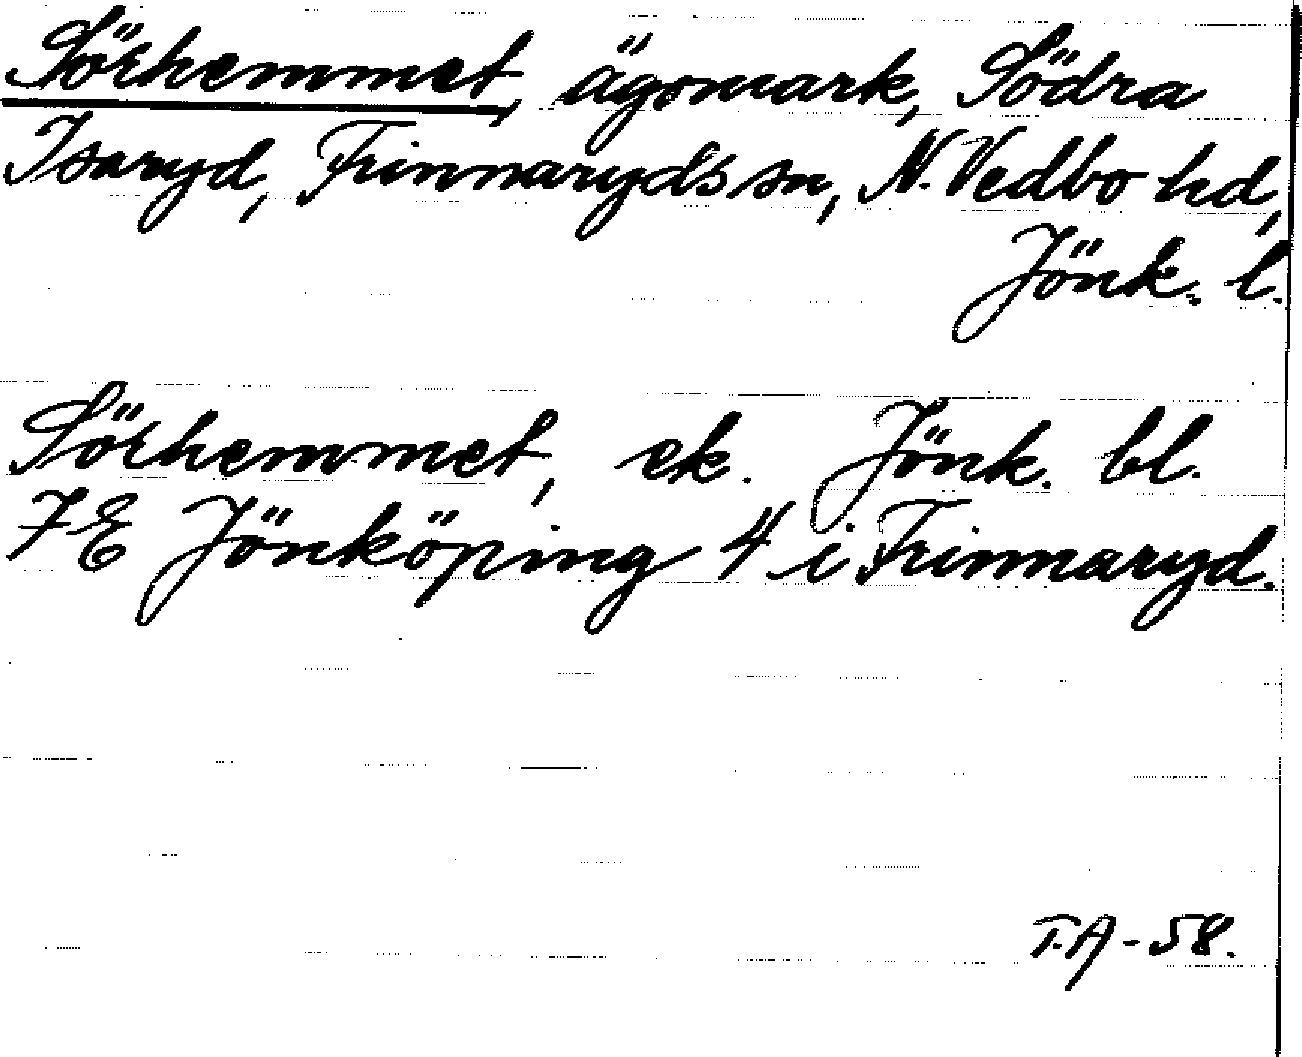 Sörhemmet, ägomark, Södra
Isaryd, Frinnaryds sn, N. Vedbo hd,
Jönk. l.
Sörhemmet, ek. Jönk. bl.
7E Jönköping 4 i Frinnaryd.
T.A-58.